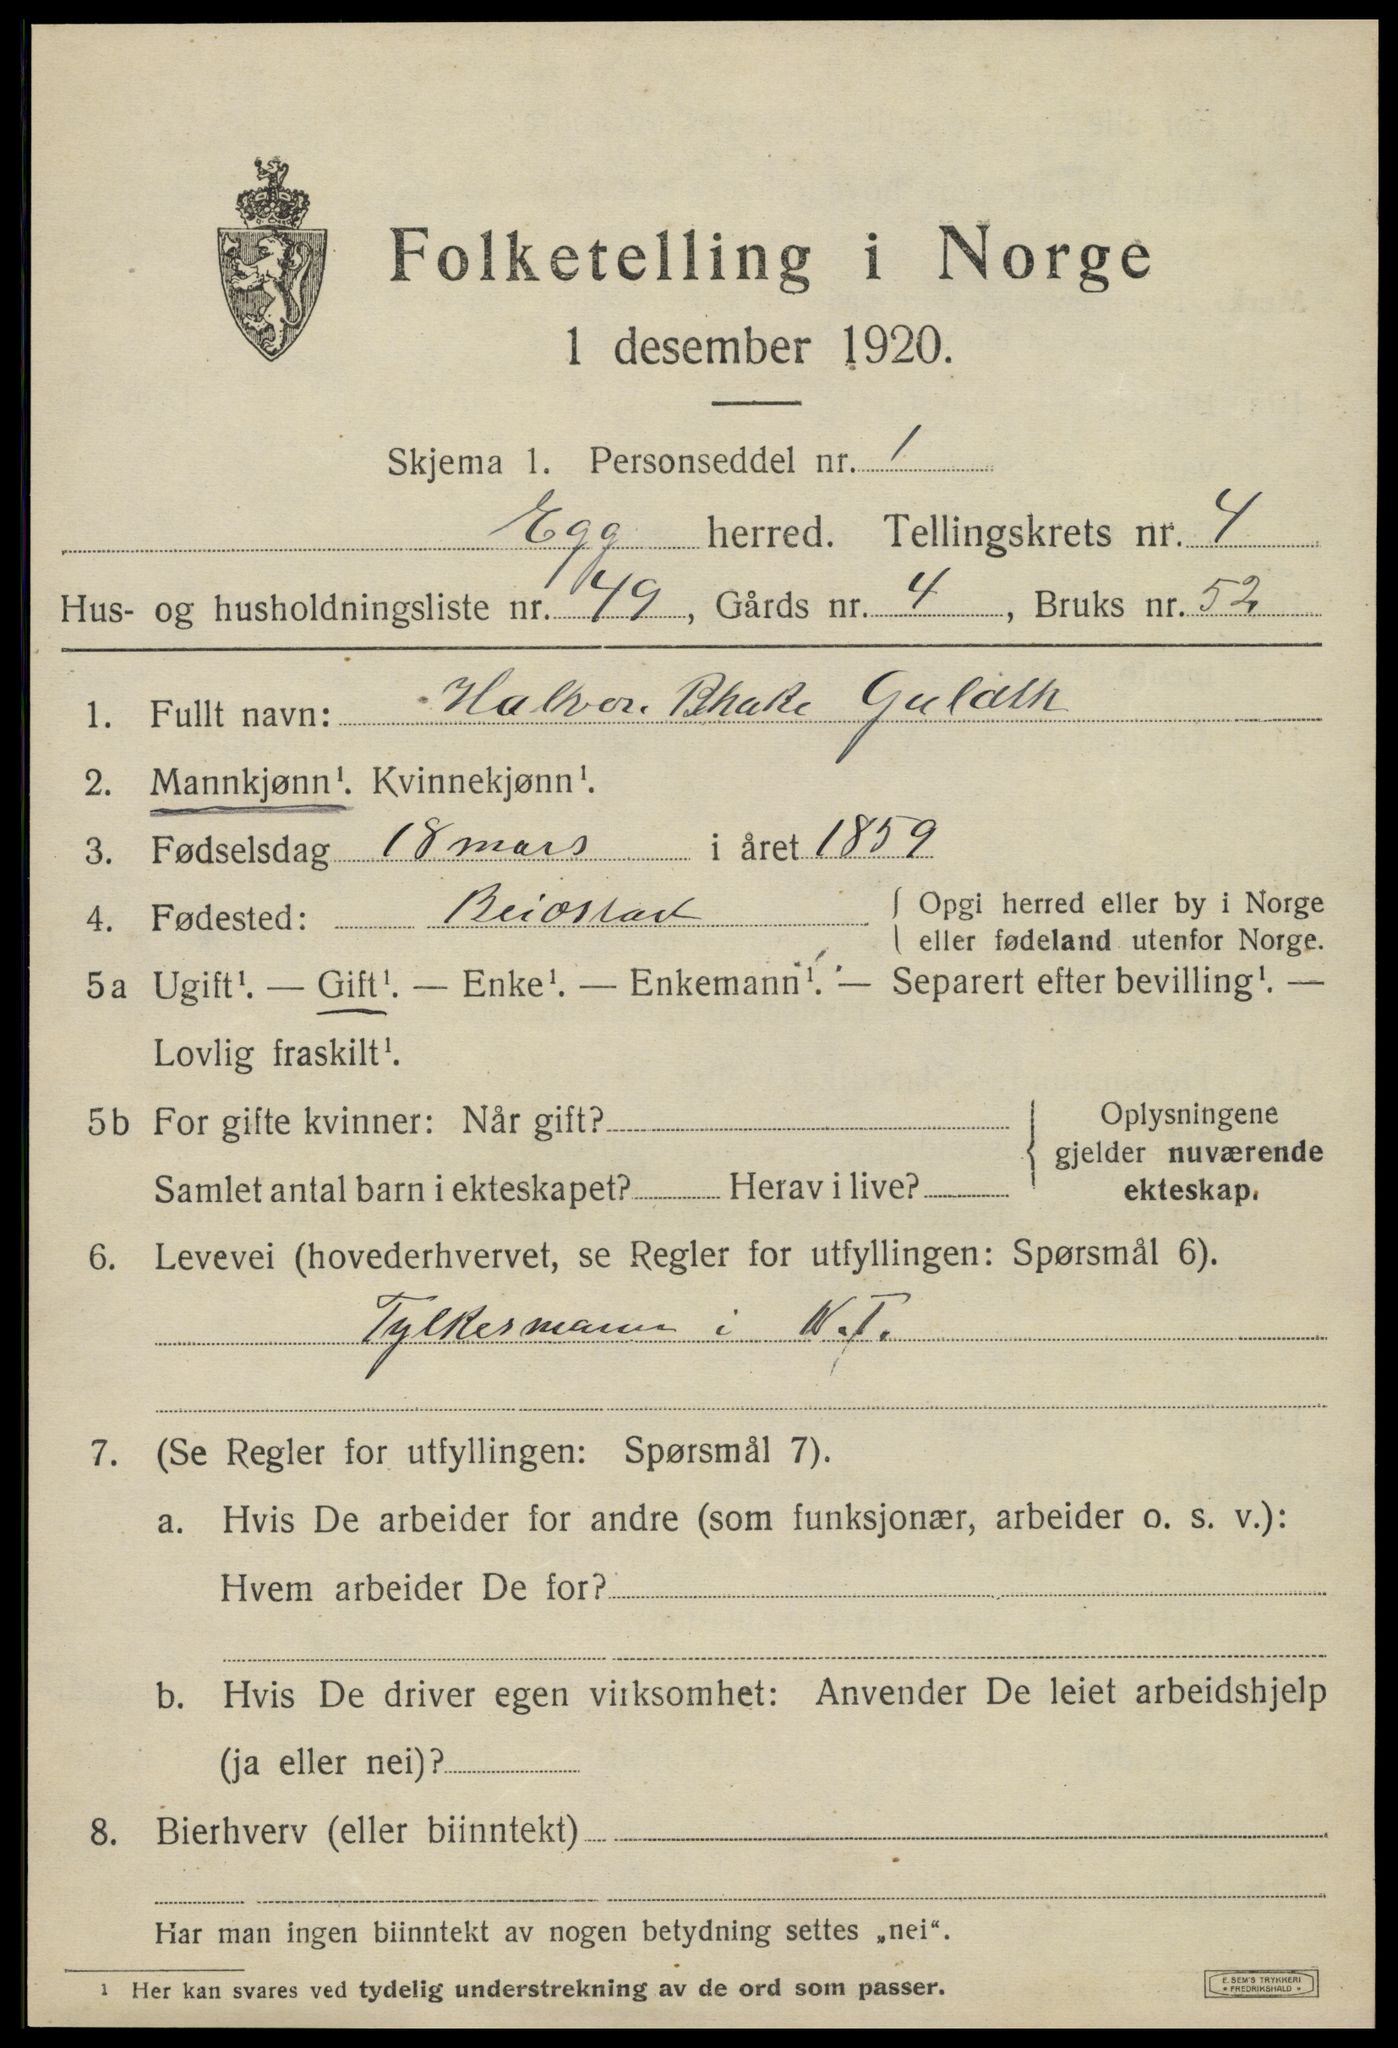 Folketelling i Norge
1 desember 1920.
Skjema 1. Personseddel nr. 1
Egg herred. Tellingskrets nr. 4
Hus- og husholdningsliste nr. 49, Gårds nr. 4, Bruks nr. 52
1. Fullt navn: Halvor
2. Mannkjønn¹. Kvinnekjønn¹.
3. Fødselsdag 18 mars i året 1859
4. Fødested: Beidstad { Opgi herred eller by i Norge
eller fødeland utenfor Norge.
5a Ugift¹. — Gift¹. — Enke¹. — Enkemann¹. — Separert efter bevilling¹. —
Lovlig fraskilt¹.
5b For gifte kvinner: Når gift? { Oplysningene
gjelder nuværende
Samlet antal barn i ekteskapet? Herav i live? ekteskap.
6. Levevei (hovederhvervet, se Regler for utfyllingen: Spørsmål 6).
Fylkesmann i N. T.
7. (Se Regler for utfyllingen: Spørsmål 7).
a. Hvis De arbeider for andre (som funksjonær, arbeider o. s. v.):
Hvem arbeider De for?
b. Hvis De driver egen virksomhet: Anvender De leiet arbeidshjelp
(ja eller nei)?
8. Bierhverv (eller biinntekt)
Har man ingen biinntekt av nogen betydning settes „nei“.
¹ Her kan svares ved tydelig understrekning av de ord som passer.
E. SEM'S TRYKKERI
FREDRIKSHALD